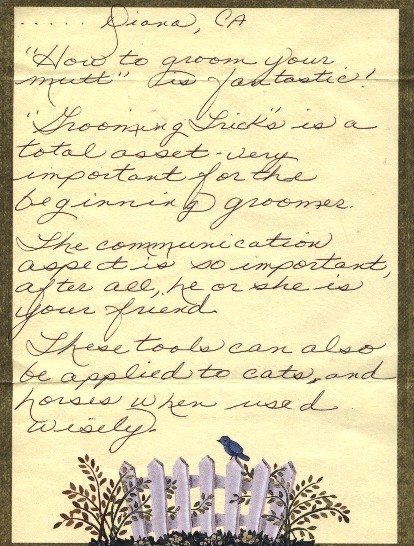 ..... Diana, CA
"How to groom your
mutt" is fantastic!
"Grooming Tricks" is a
total asset - very
important for the
beginning groomer.
The communication
aspect is so important,
after all, he or she is
your friend.
These tools can also
be applied to cats, and
horses when used
wisely.